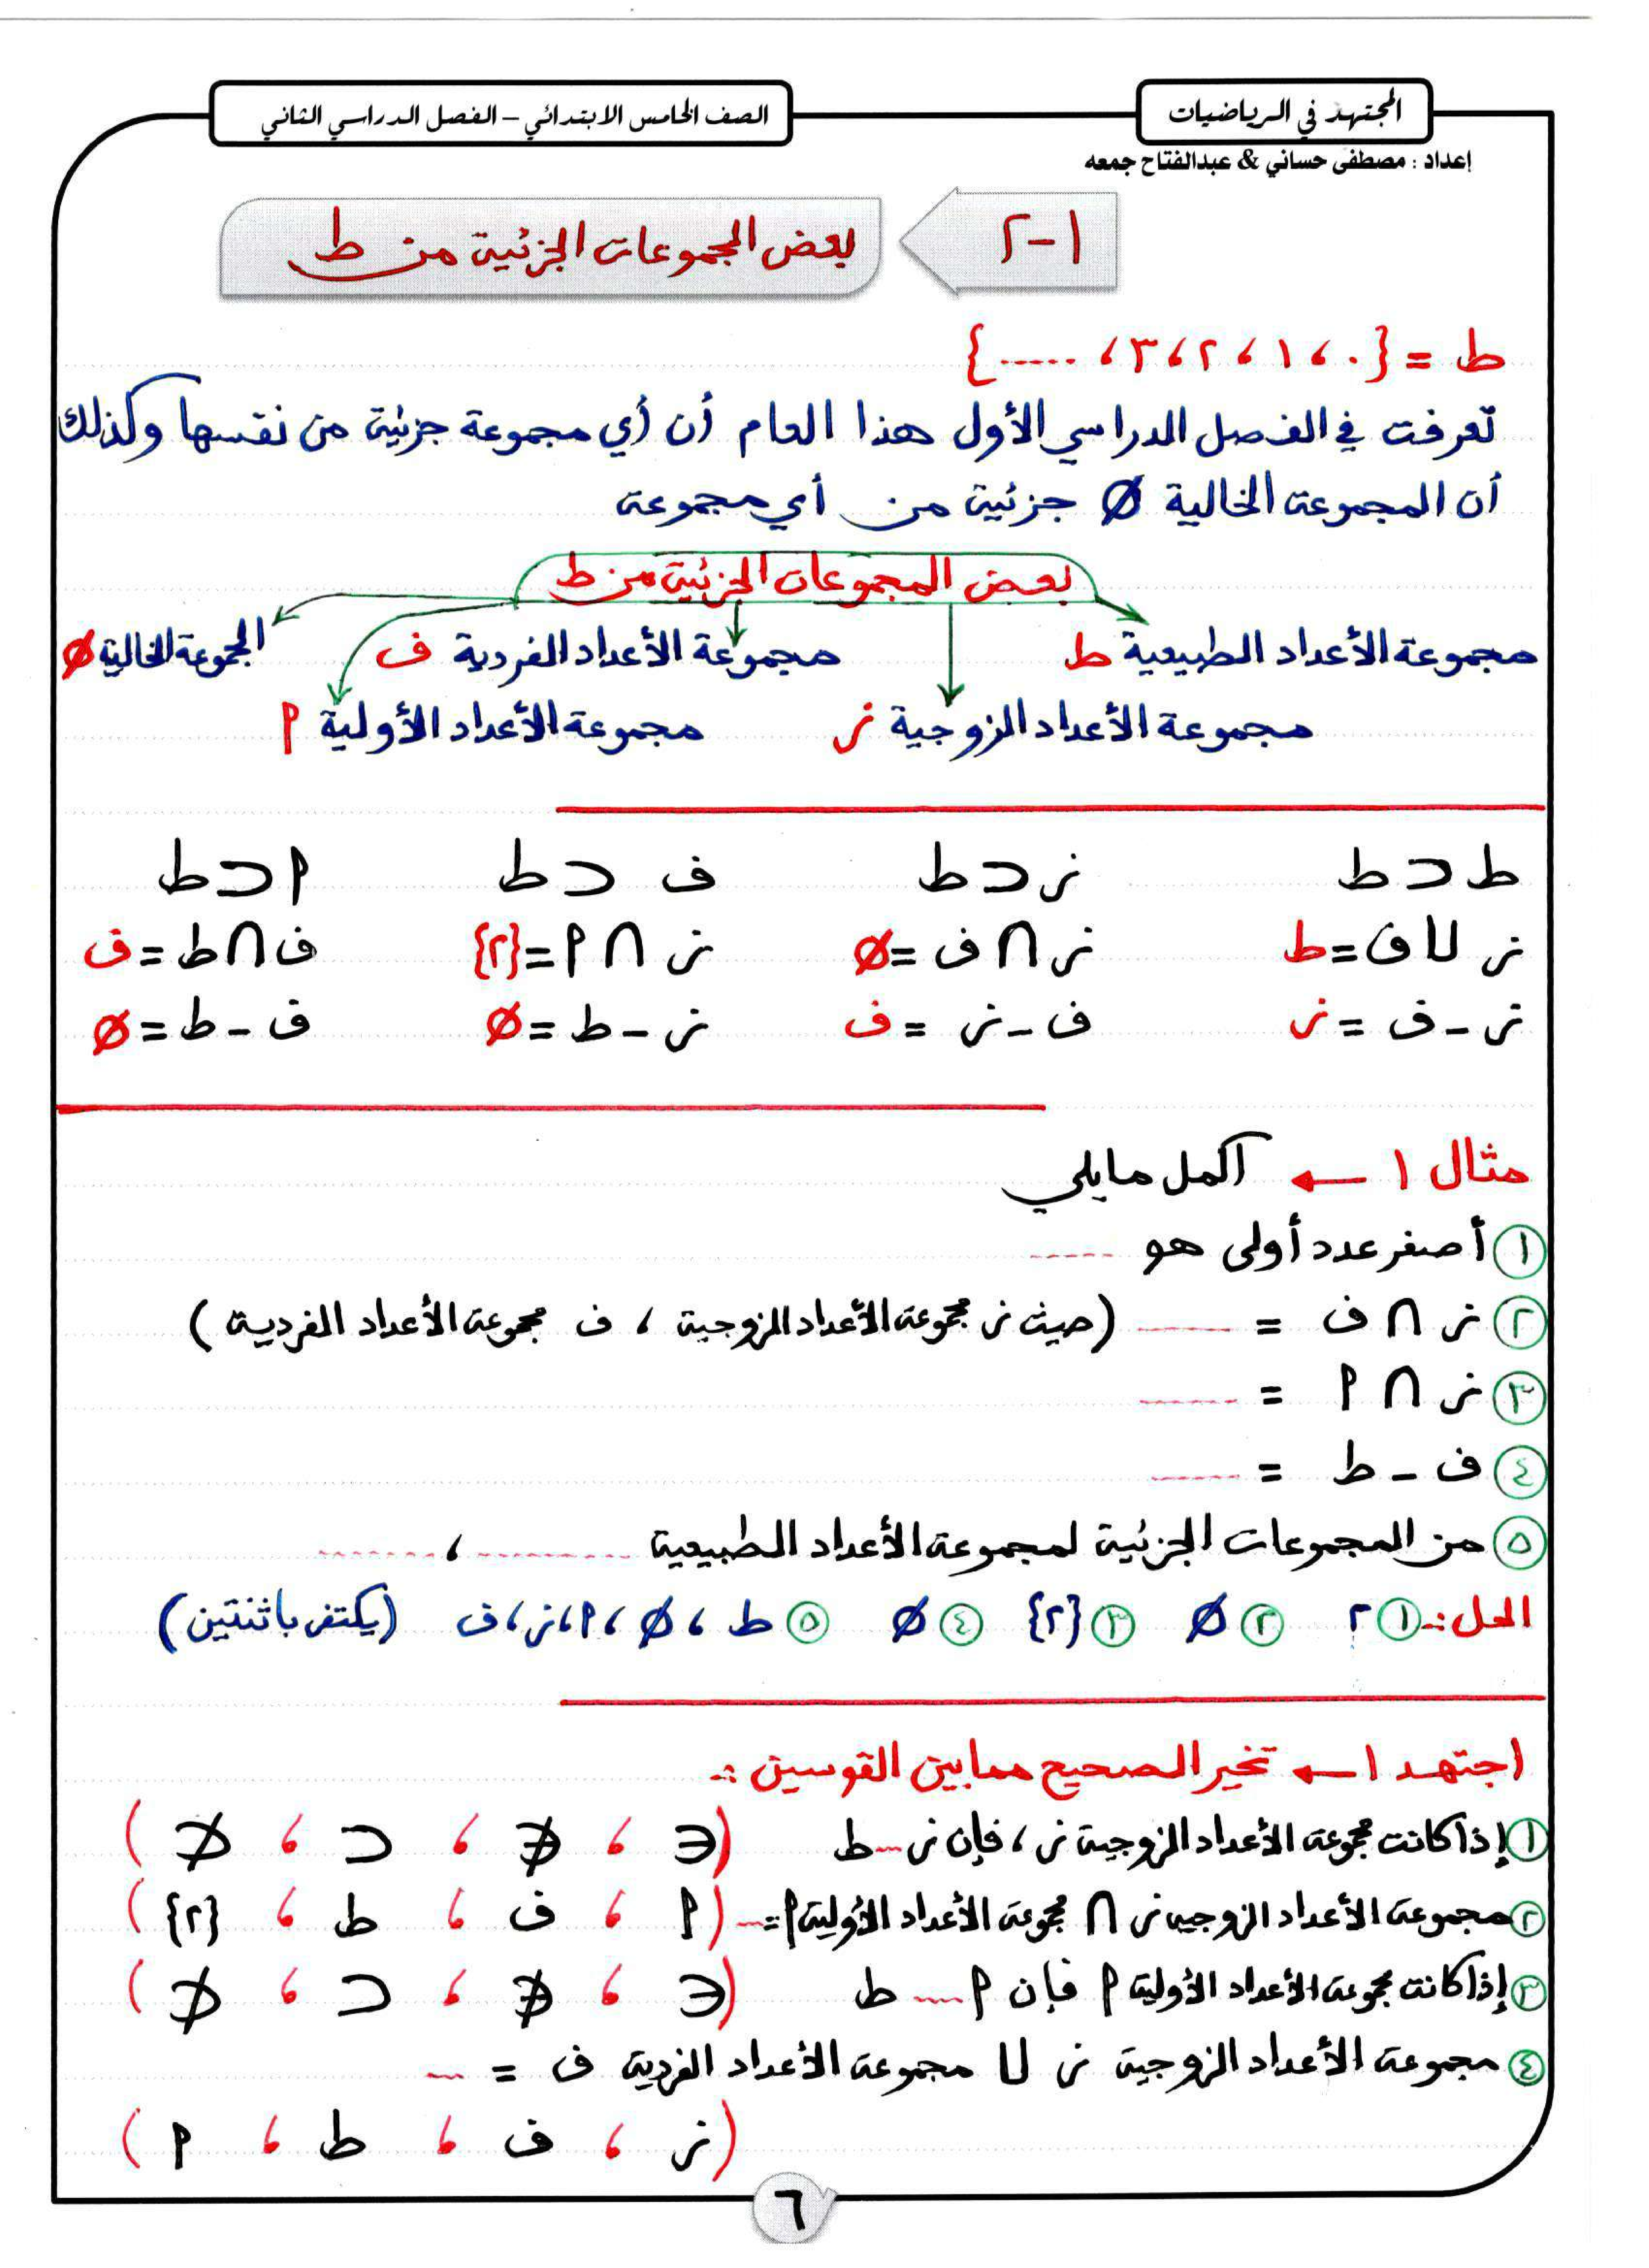 المجتهد في الرياضيات
الصف الخامس الابتدائي – الفصل الدراسي الثاني
إعداد : مصطفى حساني & عبدالفتاح جمعه
١-٢
بعض المجموعات الجزئية من ط
ط = {٠ ، ١ ، ٢ ، ٣ ، ......}
تعرفت في الفصل الدراسي الأول هذا العام أن أي مجموعة جزئية من نفسها وكذلك
أن المجموعة الخالية ∅ جزئية من أي مجموعة
بعض المجموعات الجزئية من ط
مجموعة الأعداد الطبيعية ط
مجموعة الأعداد الفردية ف
المجموعة الخالية ∅
مجموعة الأعداد الزوجية ز
مجموعة الأعداد الأولية م
ط ⊂ ط    ز ⊂ ط    ف ⊂ ط    م ⊂ ط
ز ∪ ف = ط    ز ∩ ف = ∅    ز ∩ م = {٢}    ف ∩ ط = ف
ز - ف = ز    ف - ز = ف    ز - ط = ∅    ف - ط = ∅
مثال ١ ← أكمل ما يلي
١ أصغر عدد أولى هو ......
٢ ز ∩ ف = ...... (حيث ز مجموعة الأعداد الزوجية ، ف مجموعة الأعداد الفردية )
٣ ز ∩ م = ......
٤ ف - ط = ......
٥ من المجموعات الجزئية لمجموعة الأعداد الطبيعية ......... ، .........
الحل :- ١ ٢    ٢ ∅    ٣ {٢}    ٤ ∅    ٥ ط ، ∅ ، م ، ز ، ف (يكتفى باثنتين)
اجتهد ١ ← تخير الصحيح مما بين القوسين :-
١ إذا كانت مجموعة الأعداد الزوجية ز ، فإن ز ... ط    (∈ ، ∉ ، ⊂ ، ⊄ )
٢ مجموعة الأعداد الزوجية ز ∩ مجموعة الأعداد الأولية م = ...    (م ، ف ، ط ، {٢} )
٣ إذا كانت مجموعة الأعداد الأولية م فإن م .... ط    (∈ ، ∉ ، ⊂ ، ⊄ )
٤ مجموعة الأعداد الزوجية ز ∪ مجموعة الأعداد الفردية ف = ...
(ز ، ف ، ط ، م )
٦